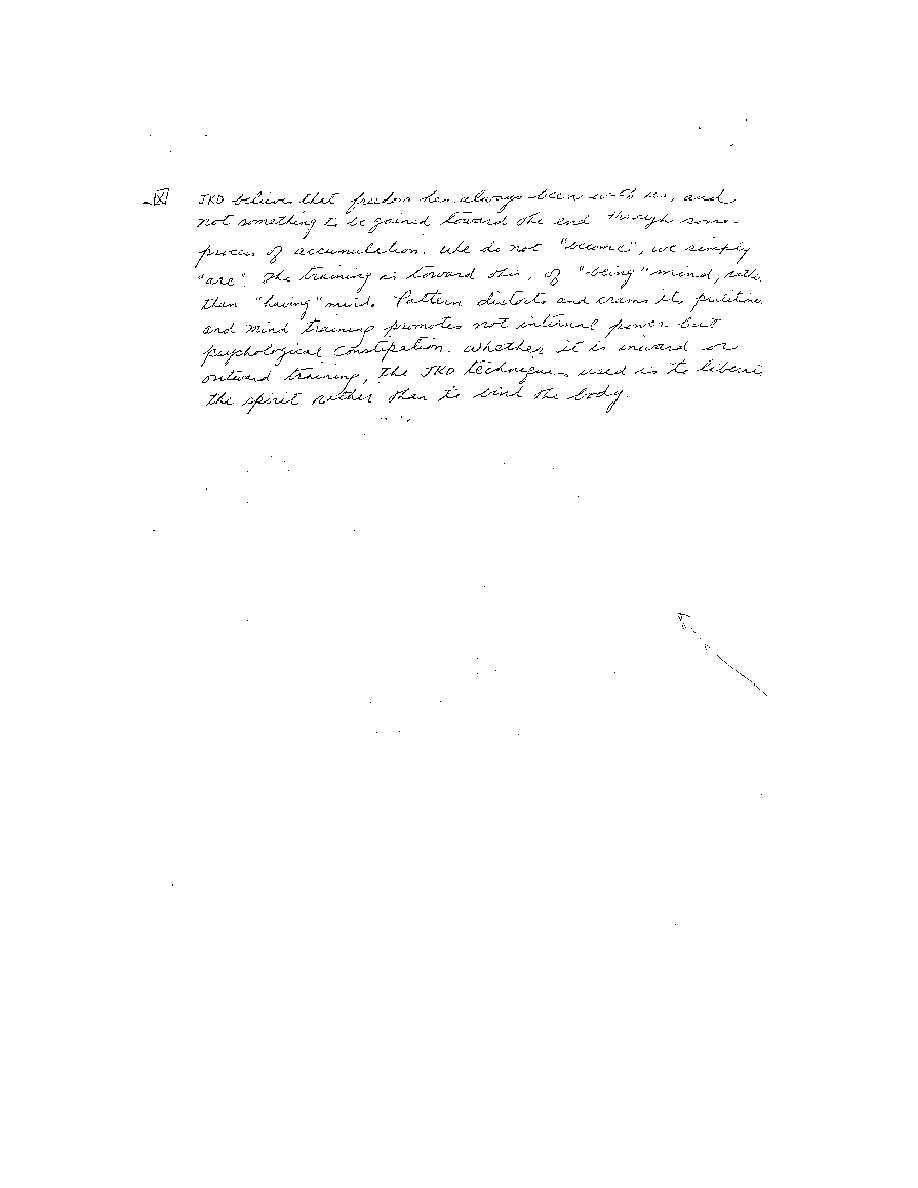 [X] JKD believe that freedom has always been with us, and
not something to be gained toward the end through some
process of accumulation. We do not "become", we simply
"are". The training is toward this, of "being" mind, rathe
than "having" mind. Pattern distorts and crams its
and mind training promotes not internal power but
psychological constipation. Whether it is inward or
outward training, the JKD techniques used is to libera
the spirit rather than to bind the body.